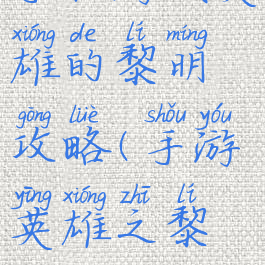 xióng de lí míng
雄的黎明
gōng lüè shǒu yóu
攻略(手游
yīng xióng zhī lí
英雄之黎